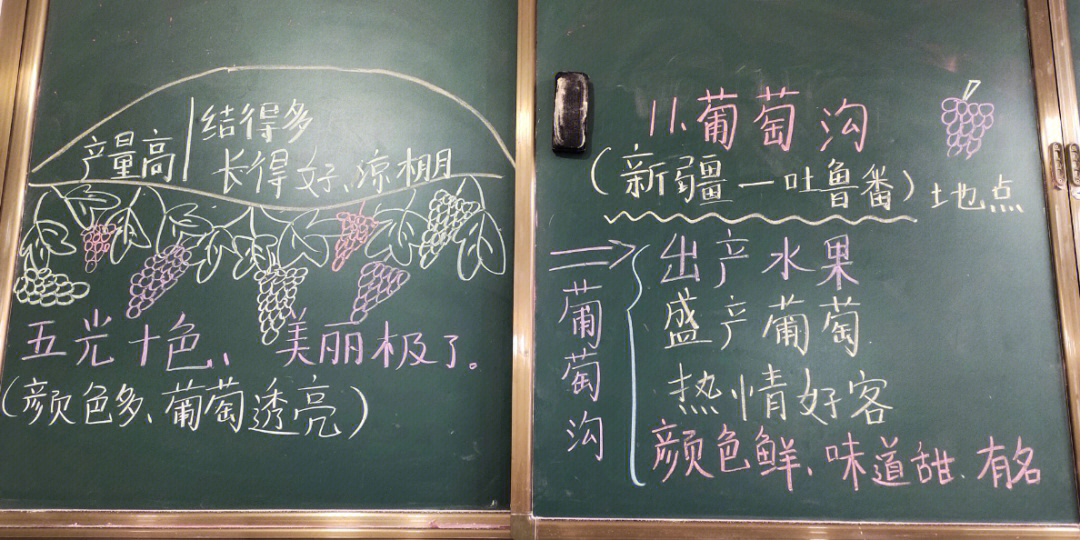 结得多
产量高
长得好、凉棚
五光十色、美丽极了。
(颜色多、葡萄透亮)
11.葡萄沟
(新疆—吐鲁番)地点
葡萄沟
出产水果
盛产葡萄
热情好客
颜色鲜、味道甜、有名